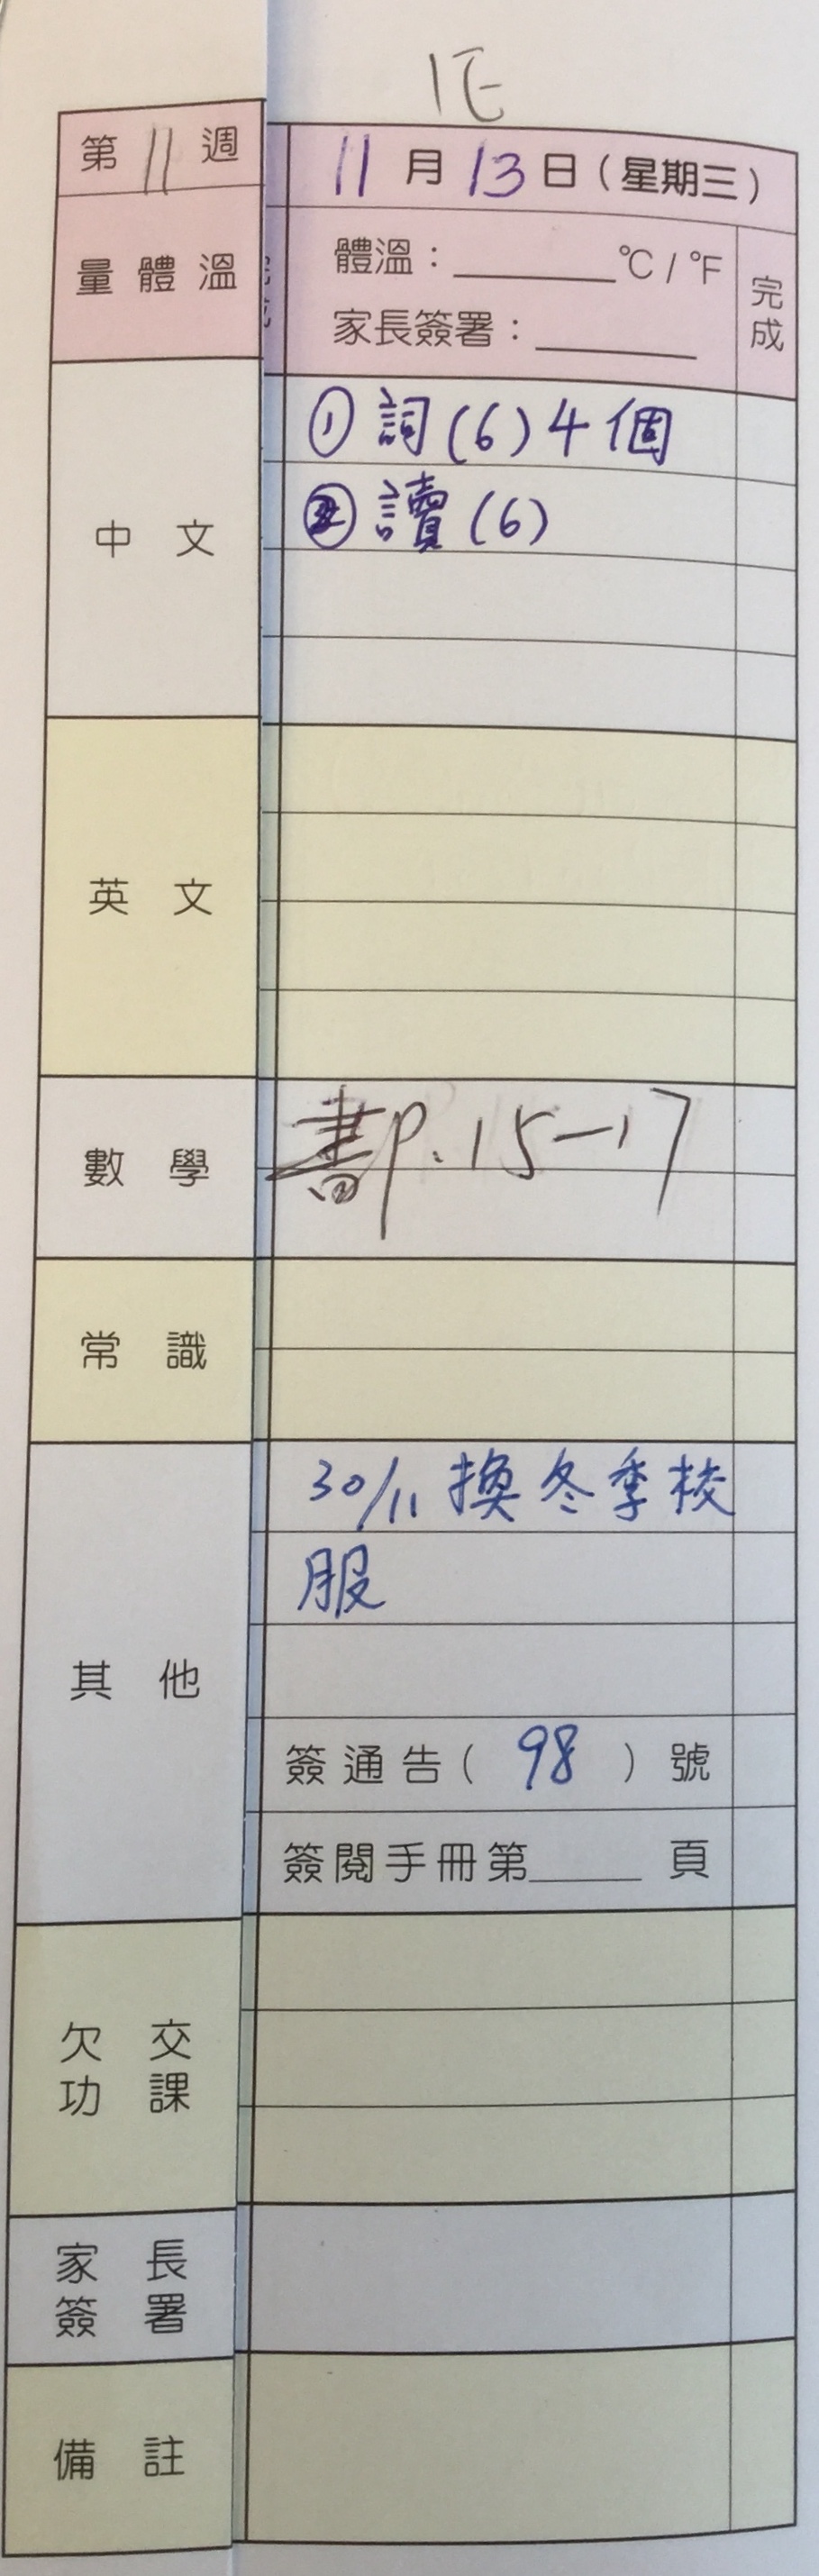 1E
第11週
11月13日(星期三)
量體溫
體溫：______℃/℉
家長簽署：______
完成
中文
① 詞(6)4個
② 讀(6)
英文
數學
書P.15-17
常識
其他
30/11 換冬季校
服
簽通告( 98 )號
簽閱手冊第____頁
欠交
功課
家長
簽署
備註